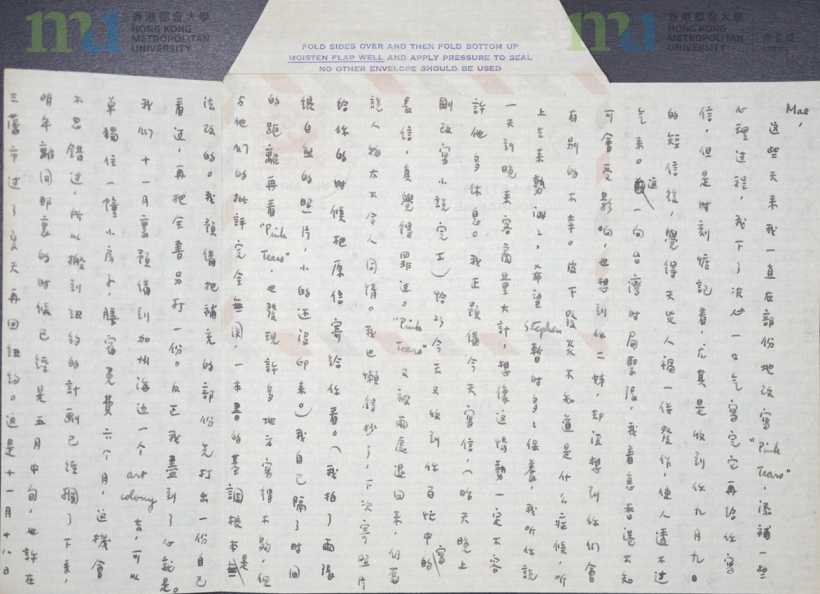 香港都會大學
HONG KONG
METROPOLITAN
UNIVERSITY
香港都會大學
HONG KONG
METROPOLITAN
UNIVERSITY
FOLD SIDES OVER AND THEN FOLD BOTTOM UP
MOISTEN FLAP WELL AND APPLY PRESSURE TO SEAL
NO OTHER ENVELOPE SHOULD BE USED
Mae,
這些天來我一直在部份地改寫“Pink Tears”，添補一些
心理過程，我下了決心一口氣寫完它再給你寫
信，但是時刻惦記着，尤其是收到你九月九日
的短信後，覺得天災人禍一齊發作，使人透不過
氣來。這一向台灣時局緊張，我着急而還不知
可會受影响，也想到你二姊，却沒想到你們會
有別的不幸。皮下發炎不知道是什么症候，听
上去來勢汹汹。希望Stephen暫時多多保養，我听你說
一天到晚來客商量大計，想像這情勢一定不容
許他多休息。我正預備今天寫信，（昨天晚上
剛改寫小說完工）恰巧今天又收到你百忙中寫的
長信，真覺得罪過。“Pink Tears”又被兩處退回來，們寫
說人物太不令人同情。我也懶得抄了，下次寄照片
給你的時候把原信寄給你看。（我拍了兩張
很自然的照片，小的還沒印來。）我自己隔了時间
的距離再看“Pink Tears”，也發現許多地方寫得不夠，但
與他們的批評完全無関，一本書的基調根本是無
法改的。我預備把補充的部份先打出一份自己
看過，再把全書另打一份。反正我盡到了心就是。
我們十一月裏預備到加州海边一个art colony去，可以
單獨住一幢小房子，膳宿免費六个月，這機會
不忍錯過，所以搬到紐約的計劃已經擱了下來，
明年離開那裏的時候已經是五月中旬，也許在
三藩市过了夏天再回紐約。這是十一月十八日